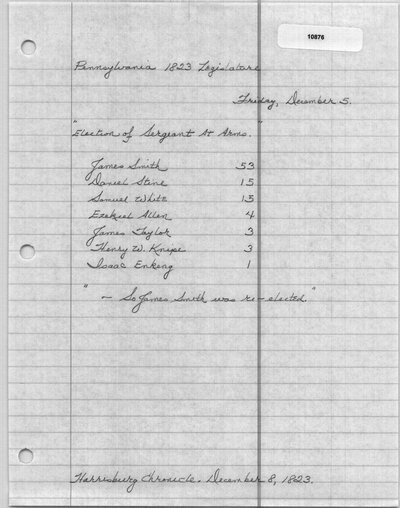 10876
Pennsylvania 1823 Legislature
Friday, December 5.
"Election of Sergeant At Arms."
James Smith 53
Daniel Stine 15
Samuel White 13
Ezekiel Allen 4
James Taylor 3
Henry W. Knipe 3
Isaac Enkeng 1
"— So James Smith was re-elected."
Harrisburg Chronicle. December 8, 1823.